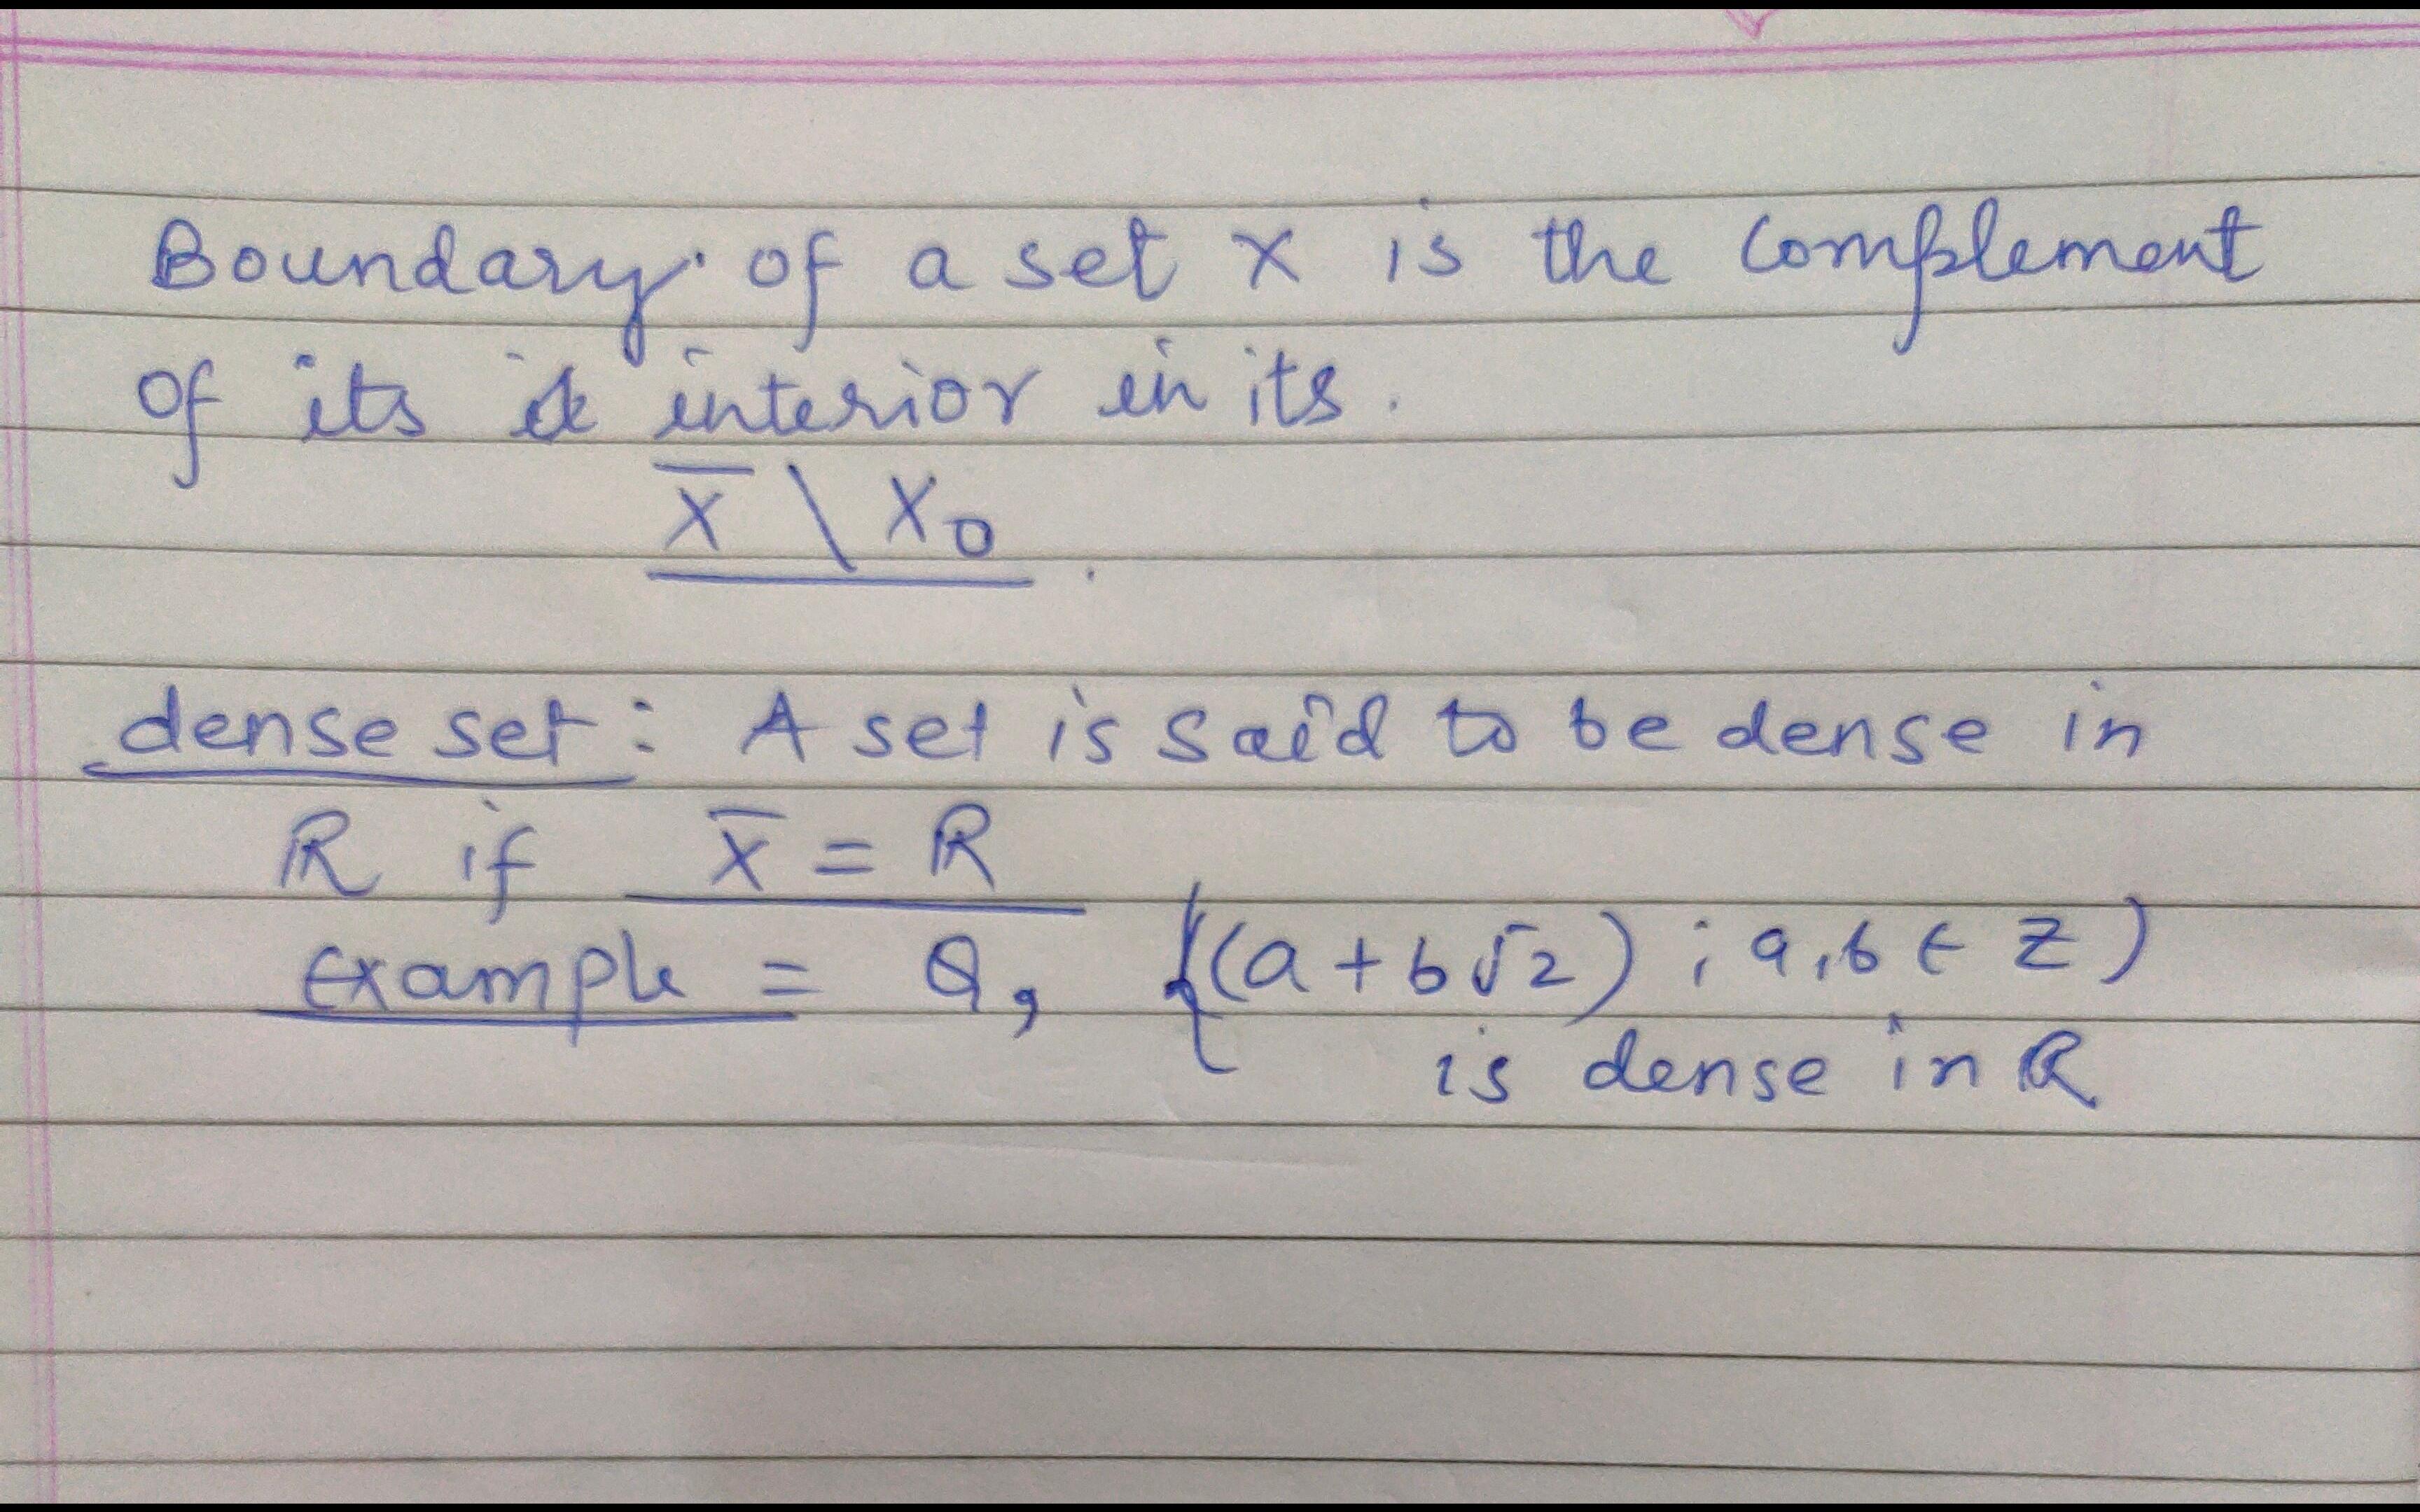 Boundary of a set X is the complement
of its interior in its.
X̅ \ X₀
dense set : A set is said to be dense in
R if X̅ = R
Example = Q, {(a+b√2) ; a,b ∈ Z)
is dense in R